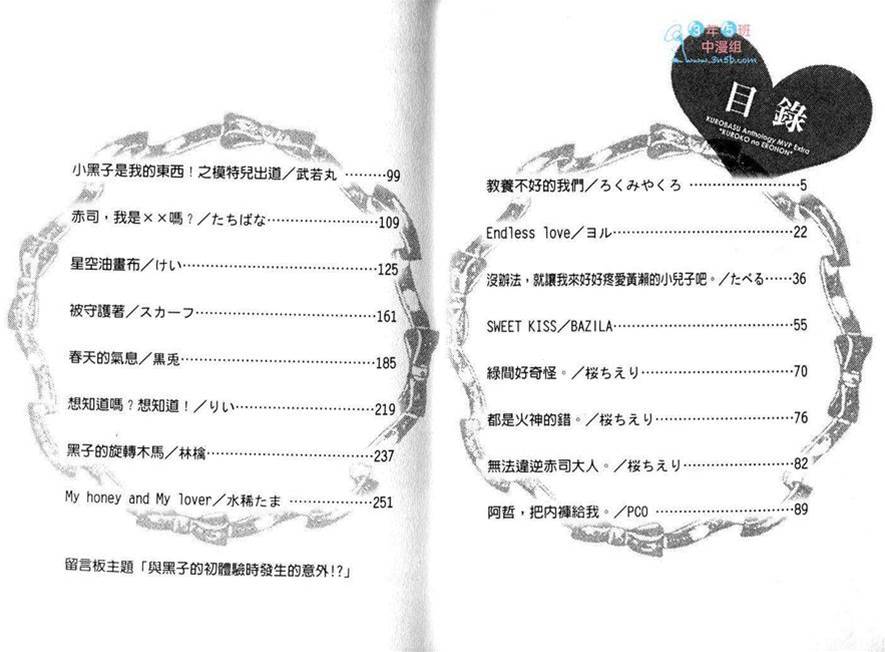 3年5班
中漫组
www.3n5b.com
目錄
KUROBASU Anthology MVP Extra
"KUROKO no EROHON"
教養不好的我們／ろくみやくろ ……………………5
Endless love／ヨル……………………22
沒辦法，就讓我來好好疼愛黃瀨的小兒子吧。／たべる……36
SWEET KISS／BAZILA……………………55
綠間好奇怪。／桜ちえり……………………70
都是火神的錯。／桜ちえり……………………76
無法違逆赤司大人。／桜ちえり……………………82
阿哲，把內褲給我。／PCO ……………………89
小黑子是我的東西！之模特兒出道／武若丸 ………99
赤司，我是××嗎？／たちばな……………………109
星空油畫布／けい……………………125
被守護著／スカーフ……………………161
春天的氣息／黒兎……………………185
想知道嗎？想知道！／りい……………………219
黑子的旋轉木馬／林檎……………………237
My honey and My lover／水稀たま ……………251
留言板主題「與黑子的初體驗時發生的意外!?」